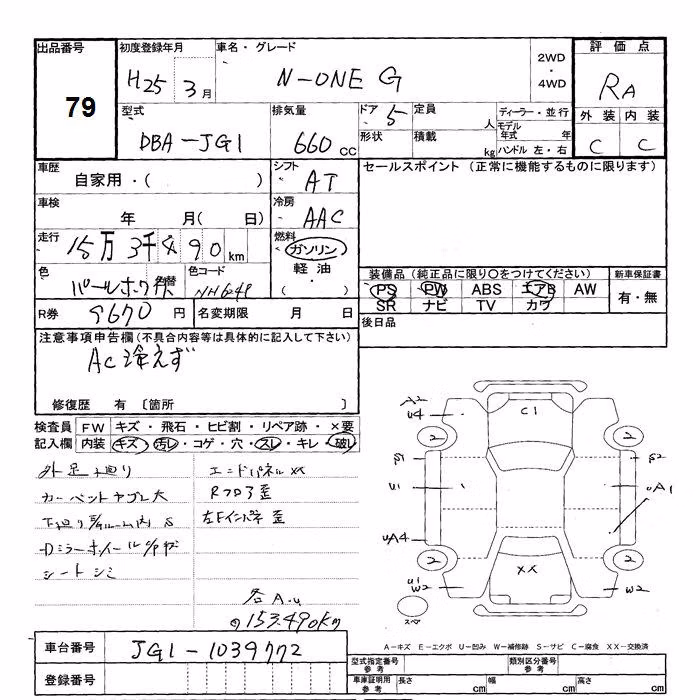 出品番号 79
初度登録年月 H25 3月
車名・グレード N-ONE G
2WD・4WD
評価点 RA
外装 C 内装 C
型式 DBA-JG1
排気量 660cc
ドア 5 定員 人
形状 積載 kg
ディーラー・並行
モデル年式 年
ハンドル 左・右
車歴 自家用・( )
シフト AT
セールスポイント (正常に機能するものに限ります)
車検 年 月( 日)
冷房 AAC
走行 15万3千490km
燃料 ガソリン 軽油 ・( )
色 パールホワイト
色コード NH624P
装備品(純正品に限り○をつけてください) 新車保証書
PS PW ABS エアB AW 有・無
SR ナビ TV カワ
R券 9670円 名変期限 月 日
後日品
注意事項申告欄(不具合内容等は具体的に記入して下さい)
AC冷えず
修復歴 有 〔箇所 〕
検査員 FW キズ・飛石・ヒビ割・リペア跡・×要
記入欄 内装 キズ・汚レ・コゲ・穴・スレ・キレ・破レ
外 足廻り エンドパネルXX
カーペット ヨゴレ大 Rフロア歪
左Fインパネ歪
シートシミ
各A.U
153.490km
A2
U4
C1
2 2
S1 S2
U1 UA1
UA4
2 2
U1
W2 XX W2
スペア
A-キズ E-エクボ U-凹み W-補修跡 S-サビ C-腐食 XX-交換済
車台番号 JG1-1039772
登録番号
型式指定番号 参考 類別区分番号 参考
車庫証明用 参考 長さ cm 幅 cm 高さ cm